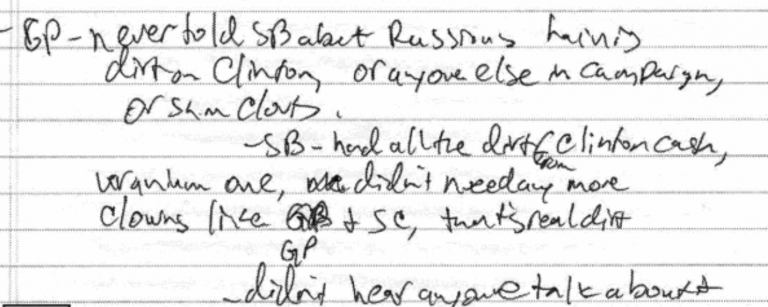 - GP - never told SB about Russians having
dirt on Clinton, or anyone else in campaign,
or Sam Clovis.
- SB - had all the dirt from Clinton Cash,
Uranium one, didn't need any more
clowns like GP + SC, that's real dirt
- didn't hear anyone talk about